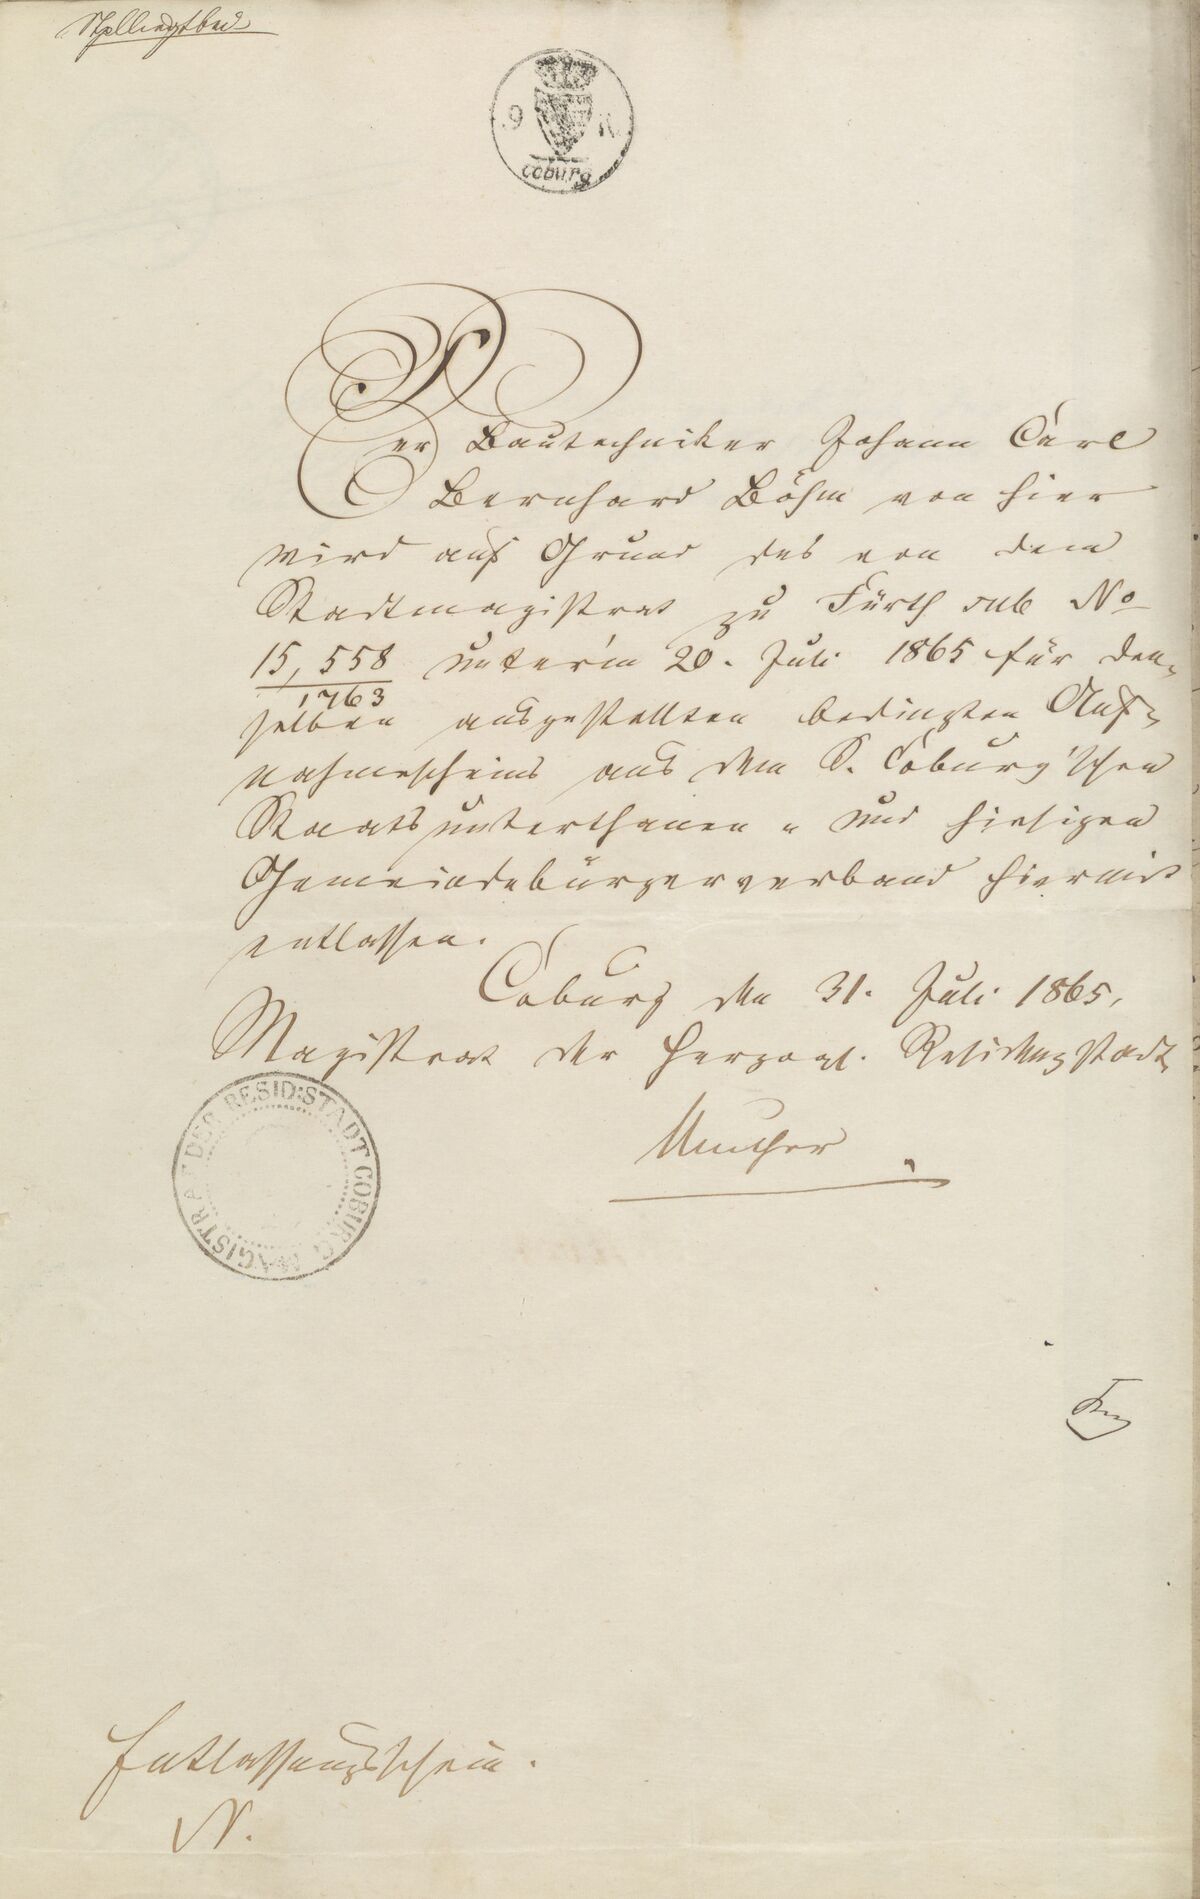 9 K.
Coburg
Der Bautechniker Johann Carl
Bernhard Böhm von hier
wird auf Grund des von dem
Stadtmagistrat zu Fürth sub No
15,558
1763
unter'm 20. Juli 1865 für den-
selben ausgestellten bedingten Auf-
nahmescheins aus dem S. Coburg'schen
Staatsunterthanen- und hiesigen
Gemeindebürgerverband hiermit
entlassen.
Coburg den 31. Juli 1865.
Magistrat der Herzogl. Residenzstadt
Muther
MAGISTRAT DER RESID:STADT COBURG
Entlassungsschein.
N.